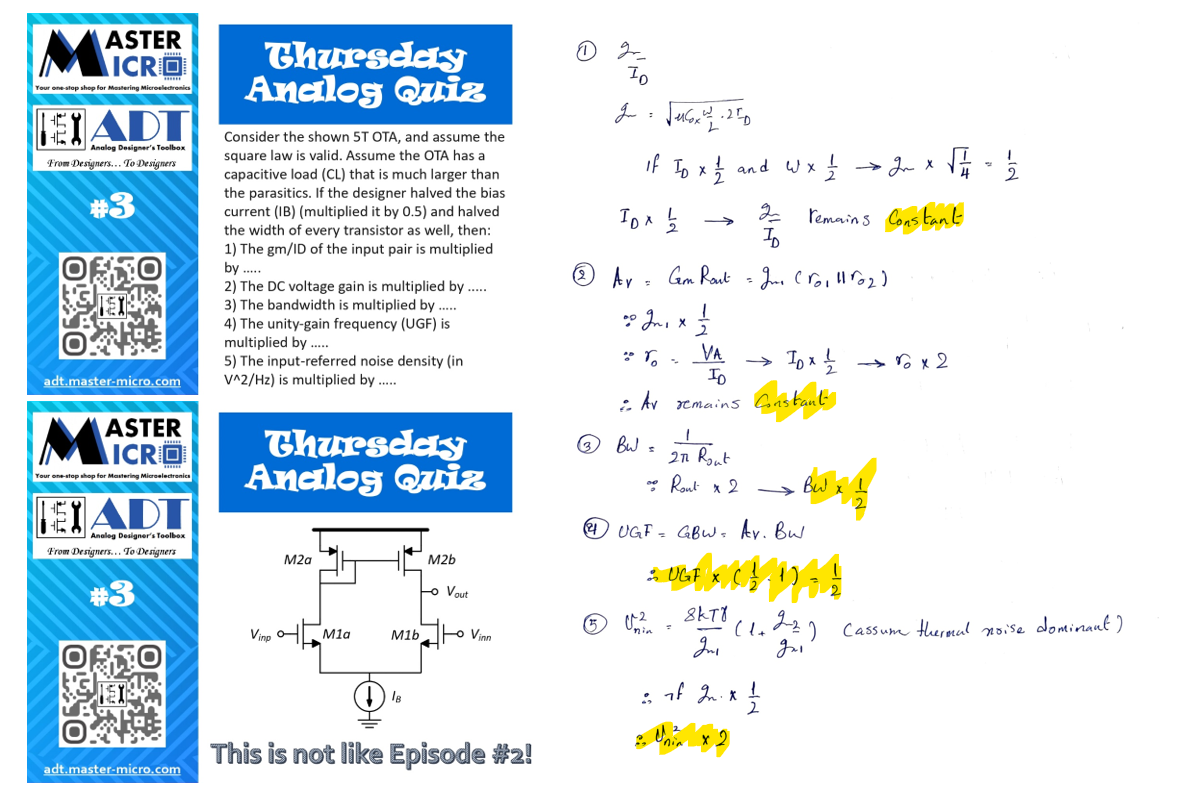 MASTER
MICRO
Your one-stop shop for Mastering Microelectronics
ADT
Analog Designer's Toolbox
From Designers... To Designers
#3
adt.master-micro.com
Thursday
Analog Quiz
Consider the shown 5T OTA, and assume the
square law is valid. Assume the OTA has a
capacitive load (CL) that is much larger than
the parasitics. If the designer halved the bias
current (IB) (multiplied it by 0.5) and halved
the width of every transistor as well, then:
1) The gm/ID of the input pair is multiplied
by .....
2) The DC voltage gain is multiplied by .....
3) The bandwidth is multiplied by .....
4) The unity-gain frequency (UGF) is
multiplied by .....
5) The input-referred noise density (in
V^2/Hz) is multiplied by .....
MASTER
MICRO
Your one-stop shop for Mastering Microelectronics
ADT
Analog Designer's Toolbox
From Designers... To Designers
#3
adt.master-micro.com
Thursday
Analog Quiz
M2a M2b
Vout
Vinp M1a M1b Vinn
IB
This is not like Episode #2!
① gm/ID
gm = √(μCox W/L · 2ID)
if ID × 1/2 and W × 1/2 → gm × √(1/4) = 1/2
ID × 1/2 → gm/ID remains Constant
② Av = Gm Rout = gm1 (ro1 || ro2)
∵ gm1 × 1/2
∵ ro = VA/ID → ID × 1/2 → ro × 2
∴ Av remains Constant
③ BW = 1/(2π Rout)
∵ Rout × 2 → BW × 1/2
④ UGF = GBW = Av . BW
∴ UGF × (1/2 · 1) = 1/2
⑤ V²nin = 8kTγ/gm1 (1 + gm2/gm1) (assum thermal noise dominant)
∴ if gm × 1/2
∴ V²nin × 2